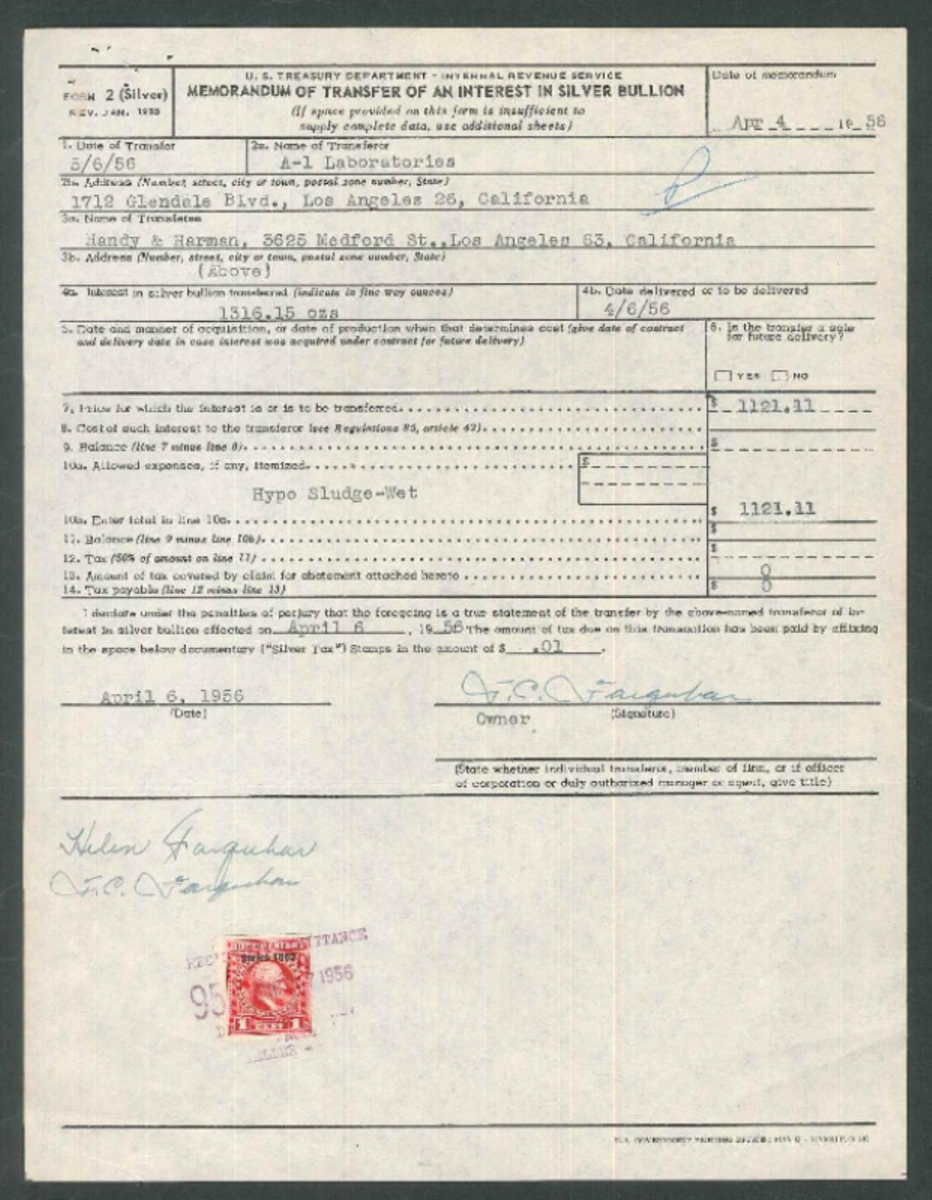 U. S. TREASURY DEPARTMENT - INTERNAL REVENUE SERVICE
FORM 2 (Silver)
REV. JAN. 1953
MEMORANDUM OF TRANSFER OF AN INTEREST IN SILVER BULLION
(If space provided on this form is insufficient to
supply complete data, use additional sheets)
Date of memorandum
Apr 4 19 56
1. Date of Transfer
2a. Name of Transferor
/6/56
A-1 Laboratories
Address (Number, street, city or town, postal zone number, State)
1712 Glendale Blvd., Los Angeles 26, California
3a. Name of Transferee
Handy & Harman, 3625 Medford St.,Los Angeles 63, California
3b. Address (Number, street, city or town, postal zone number, State)
(Above)
4a. Interest in silver bullion transferred (indicate in fine troy ounces)
4b. Date delivered or to be delivered
1316.15 ozs
4/6/56
5. Date and manner of acquisition, or date of production when that determines cost (give date of contract
and delivery date in case interest was acquired under contract for future delivery)
6. Is the transfer a sale
for future delivery?
YES NO
7. Price for which the interest is or is to be transferred
$ 1121.11
8. Cost of such interest to the transferor (see Regulations 85, article 42)
9. Balance (line 7 minus line 8)
$
10a. Allowed expenses, if any, itemized
$
Hypo Sludge-Wet
Enter total in line 10a
$ 1121.11
11. Balance (line 9 minus line 10b)
$
12. Tax (50% of amount on line 11)
$
13. Amount of tax covered by claim for abatement attached hereto
0
14. Tax payable (line 12 minus line 13)
$ 0
I declare under the penalties of perjury that the foregoing is a true statement of the transfer by the above-named transferor of in-
terest in silver bullion effected on April 6, 19 56 The amount of tax due on this transaction has been paid by affixing
in the space below documentary ("Silver Tax") Stamps in the amount of $ .01 .
April 6, 1956
F.C. Farquhar
(Date)
Owner
(Signature)
(State whether individual transferor, member of firm, or if officer
of corporation or duly authorized manager or agent, give title)
Helen Farquhar
F.C. Farquhar
DOCUMENTARY
1956
95
1 CENT 1